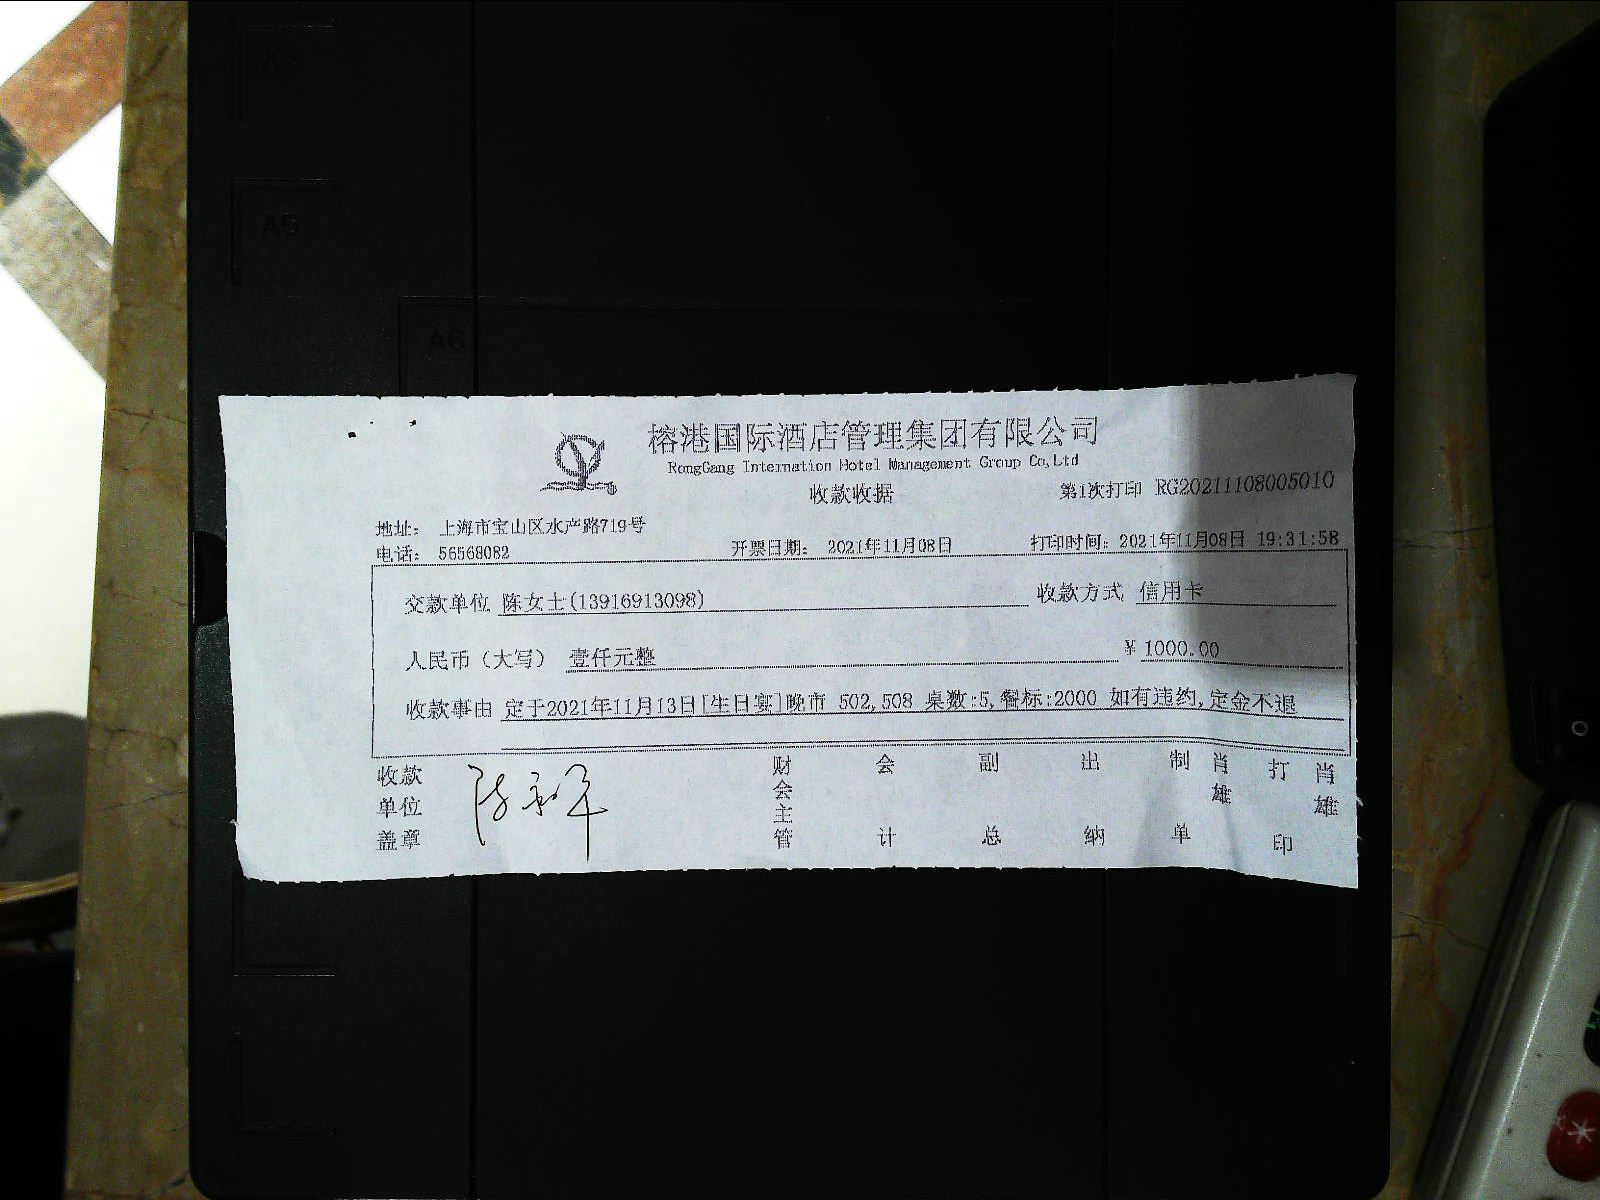 A4
A5
A6
榕港国际酒店管理集团有限公司
RongGang Internation Hotel Management Group Co,Ltd
收款收据
第1次打印 RG20211108005010
地址： 上海市宝山区水产路719号
电话： 56568082 开票日期： 2021年11月08日 打印时间：2021年11月08日 19:31:58
交款单位 陈女士(13916913098) 收款方式 信用卡
人民币（大写） 壹仟元整 ¥ 1000.00
收款事由 定于2021年11月13日[生日宴]晚市 502,508 桌数:5,餐标:2000 如有违约,定金不退
收款单位盖章 财会主管 会计 副总 出纳 制单 肖雄 打印 肖雄